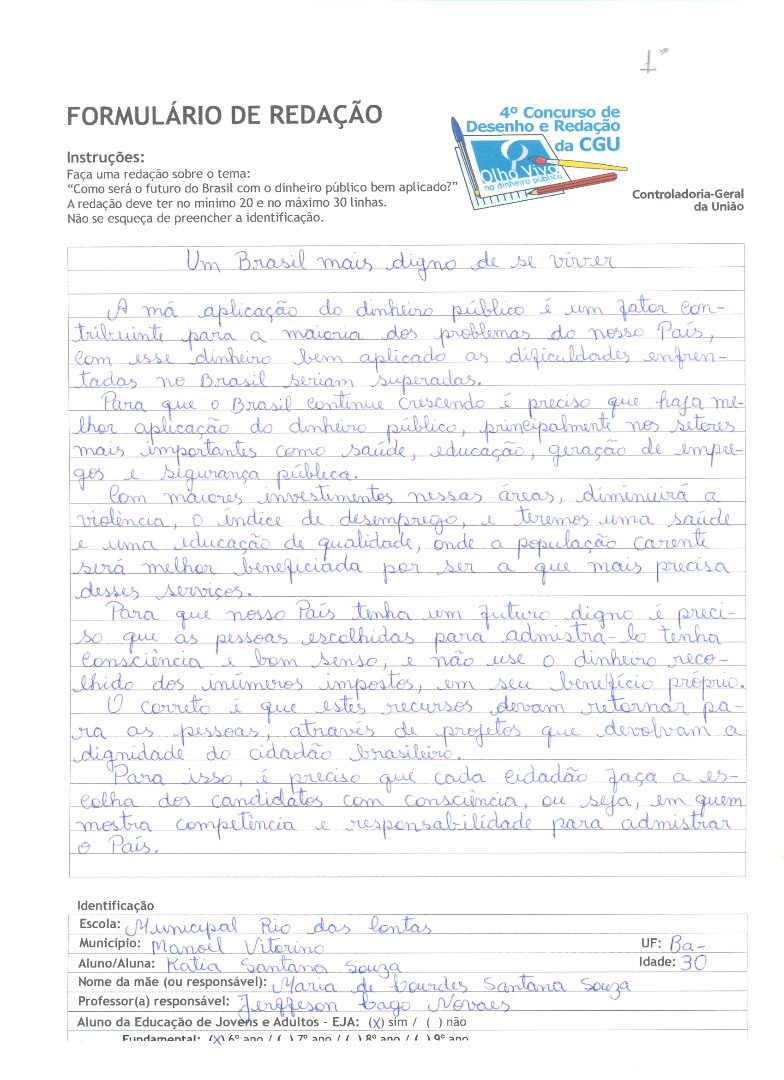 1º
FORMULÁRIO DE REDAÇÃO
4º Concurso de
Desenho e Redação
da CGU
Olho Vivo
no dinheiro público
Controladoria-Geral
da União
Instruções:
Faça uma redação sobre o tema:
“Como será o futuro do Brasil com o dinheiro público bem aplicado?”
A redação deve ter no mínimo 20 e no máximo 30 linhas.
Não se esqueça de preencher a identificação.
Um Brasil mais digno de se viver
A má aplicação do dinheiro público é um fator con-
tribuinte para a maioria dos problemas do nosso País,
com esse dinheiro bem aplicado as dificuldades enfren-
tadas no Brasil seriam superadas.
Para que o Brasil continue crescendo é preciso que haja me-
lhor aplicação do dinheiro público, principalmente nos setores
mais importantes como saúde, educação, geração de empre-
gos e sigurança pública.
Com maiores investimentos nessas áreas, diminuirá a
violência, o índice de desemprego, e teremos uma saúde
e uma educação de qualidade, onde a população carente
será melhor beneficiada por ser a que mais precisa
desses serviços.
Para que nosso País tenha um futuro digno é preci-
so que as pessoas escolhidas para admistrá-lo tenha
consciência e bom senso, e não use o dinheiro reco-
lhido dos inúmeros impostos, em seu benefício próprio.
O correto é que estes recursos devam retornar pa-
ra as pessoas, através de projetos que devolvam a
dignidade do cidadão brasileiro.
Para isso, é preciso que cada cidadão faça a es-
colha dos candidatos com consciência, ou seja, em quem
mostra competência e responsabilidade para admistrar
o País.
Identificação
Escola: Municipal Rio das Contas
Município: Manoel Vitorino UF: Ba-
Aluno/Aluna: Katia Santana Souza Idade: 30
Nome da mãe (ou responsável): Maria de Lourdes Santana Souza
Professor(a) responsável: Jerffeson Lago Novaes
Aluno da Educação de Jovens e Adultos - EJA: (x) sim / ( ) não
Fundamental: (x) 6º ano / ( ) 7º ano / ( ) 8º ano / ( ) 9º ano